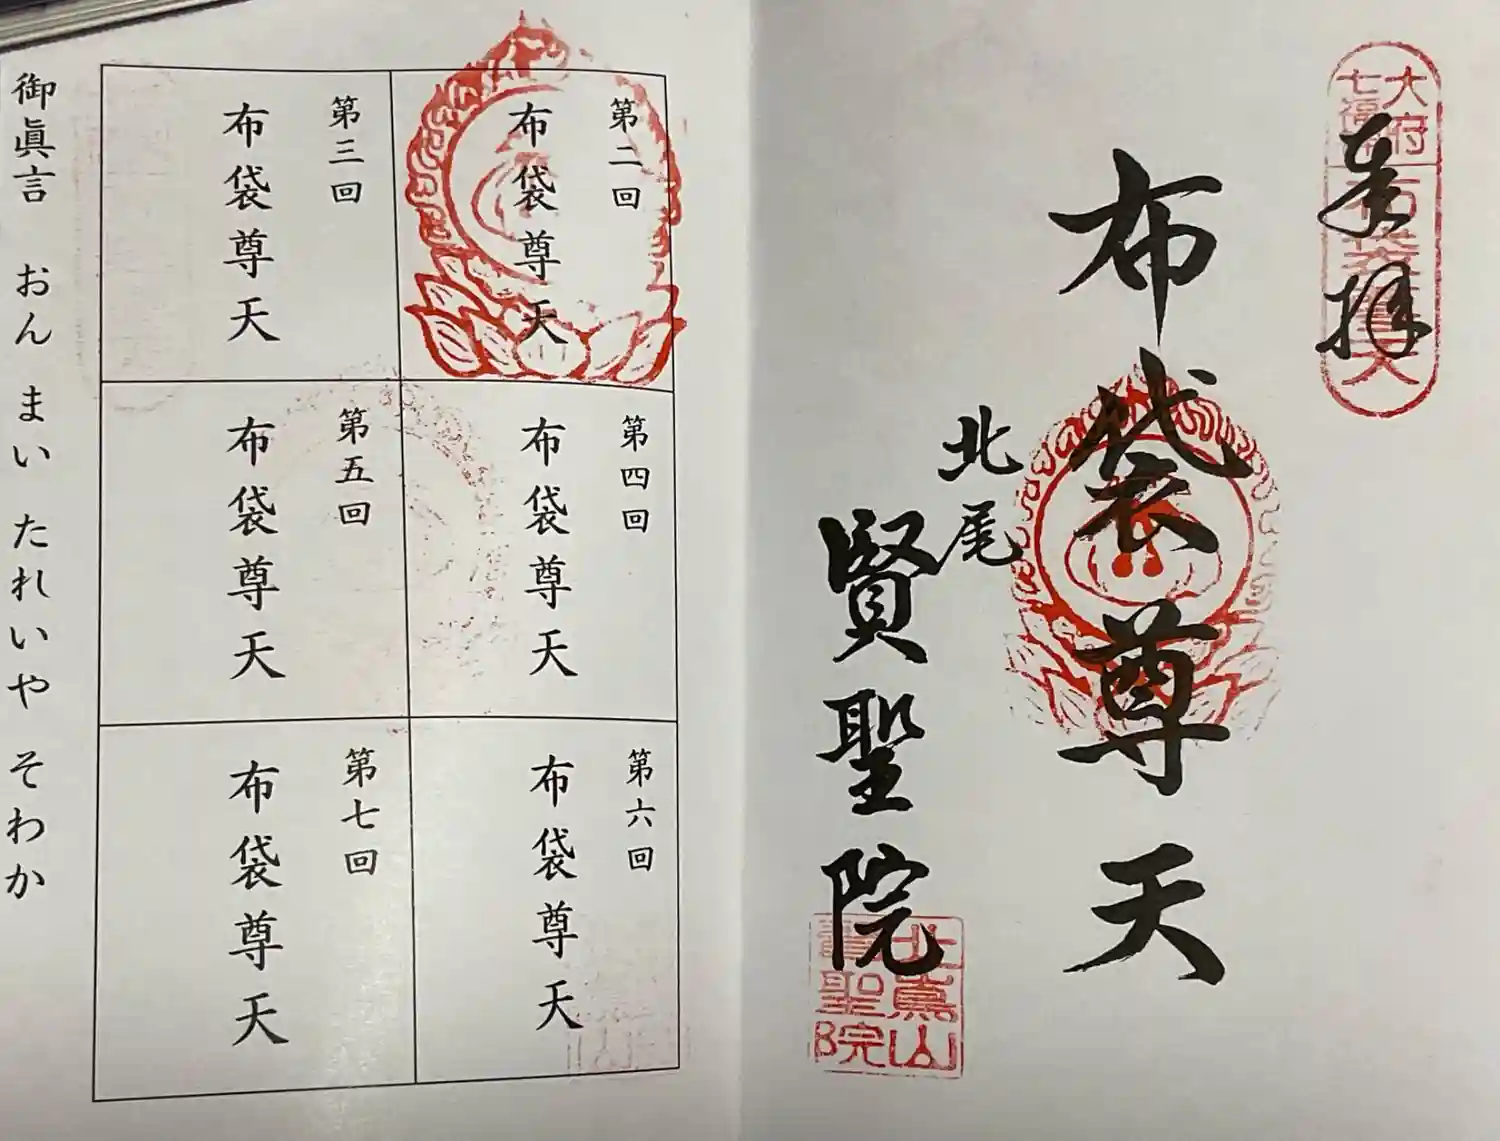 奉拝
大府
七福神
布袋尊天
布袋尊天
北尾
賢聖院
北嶌山
賢聖院
第二回
布袋尊天
第三回
布袋尊天
第四回
布袋尊天
第五回
布袋尊天
第六回
布袋尊天
第七回
布袋尊天
御眞言 おん まい たれいや そわか